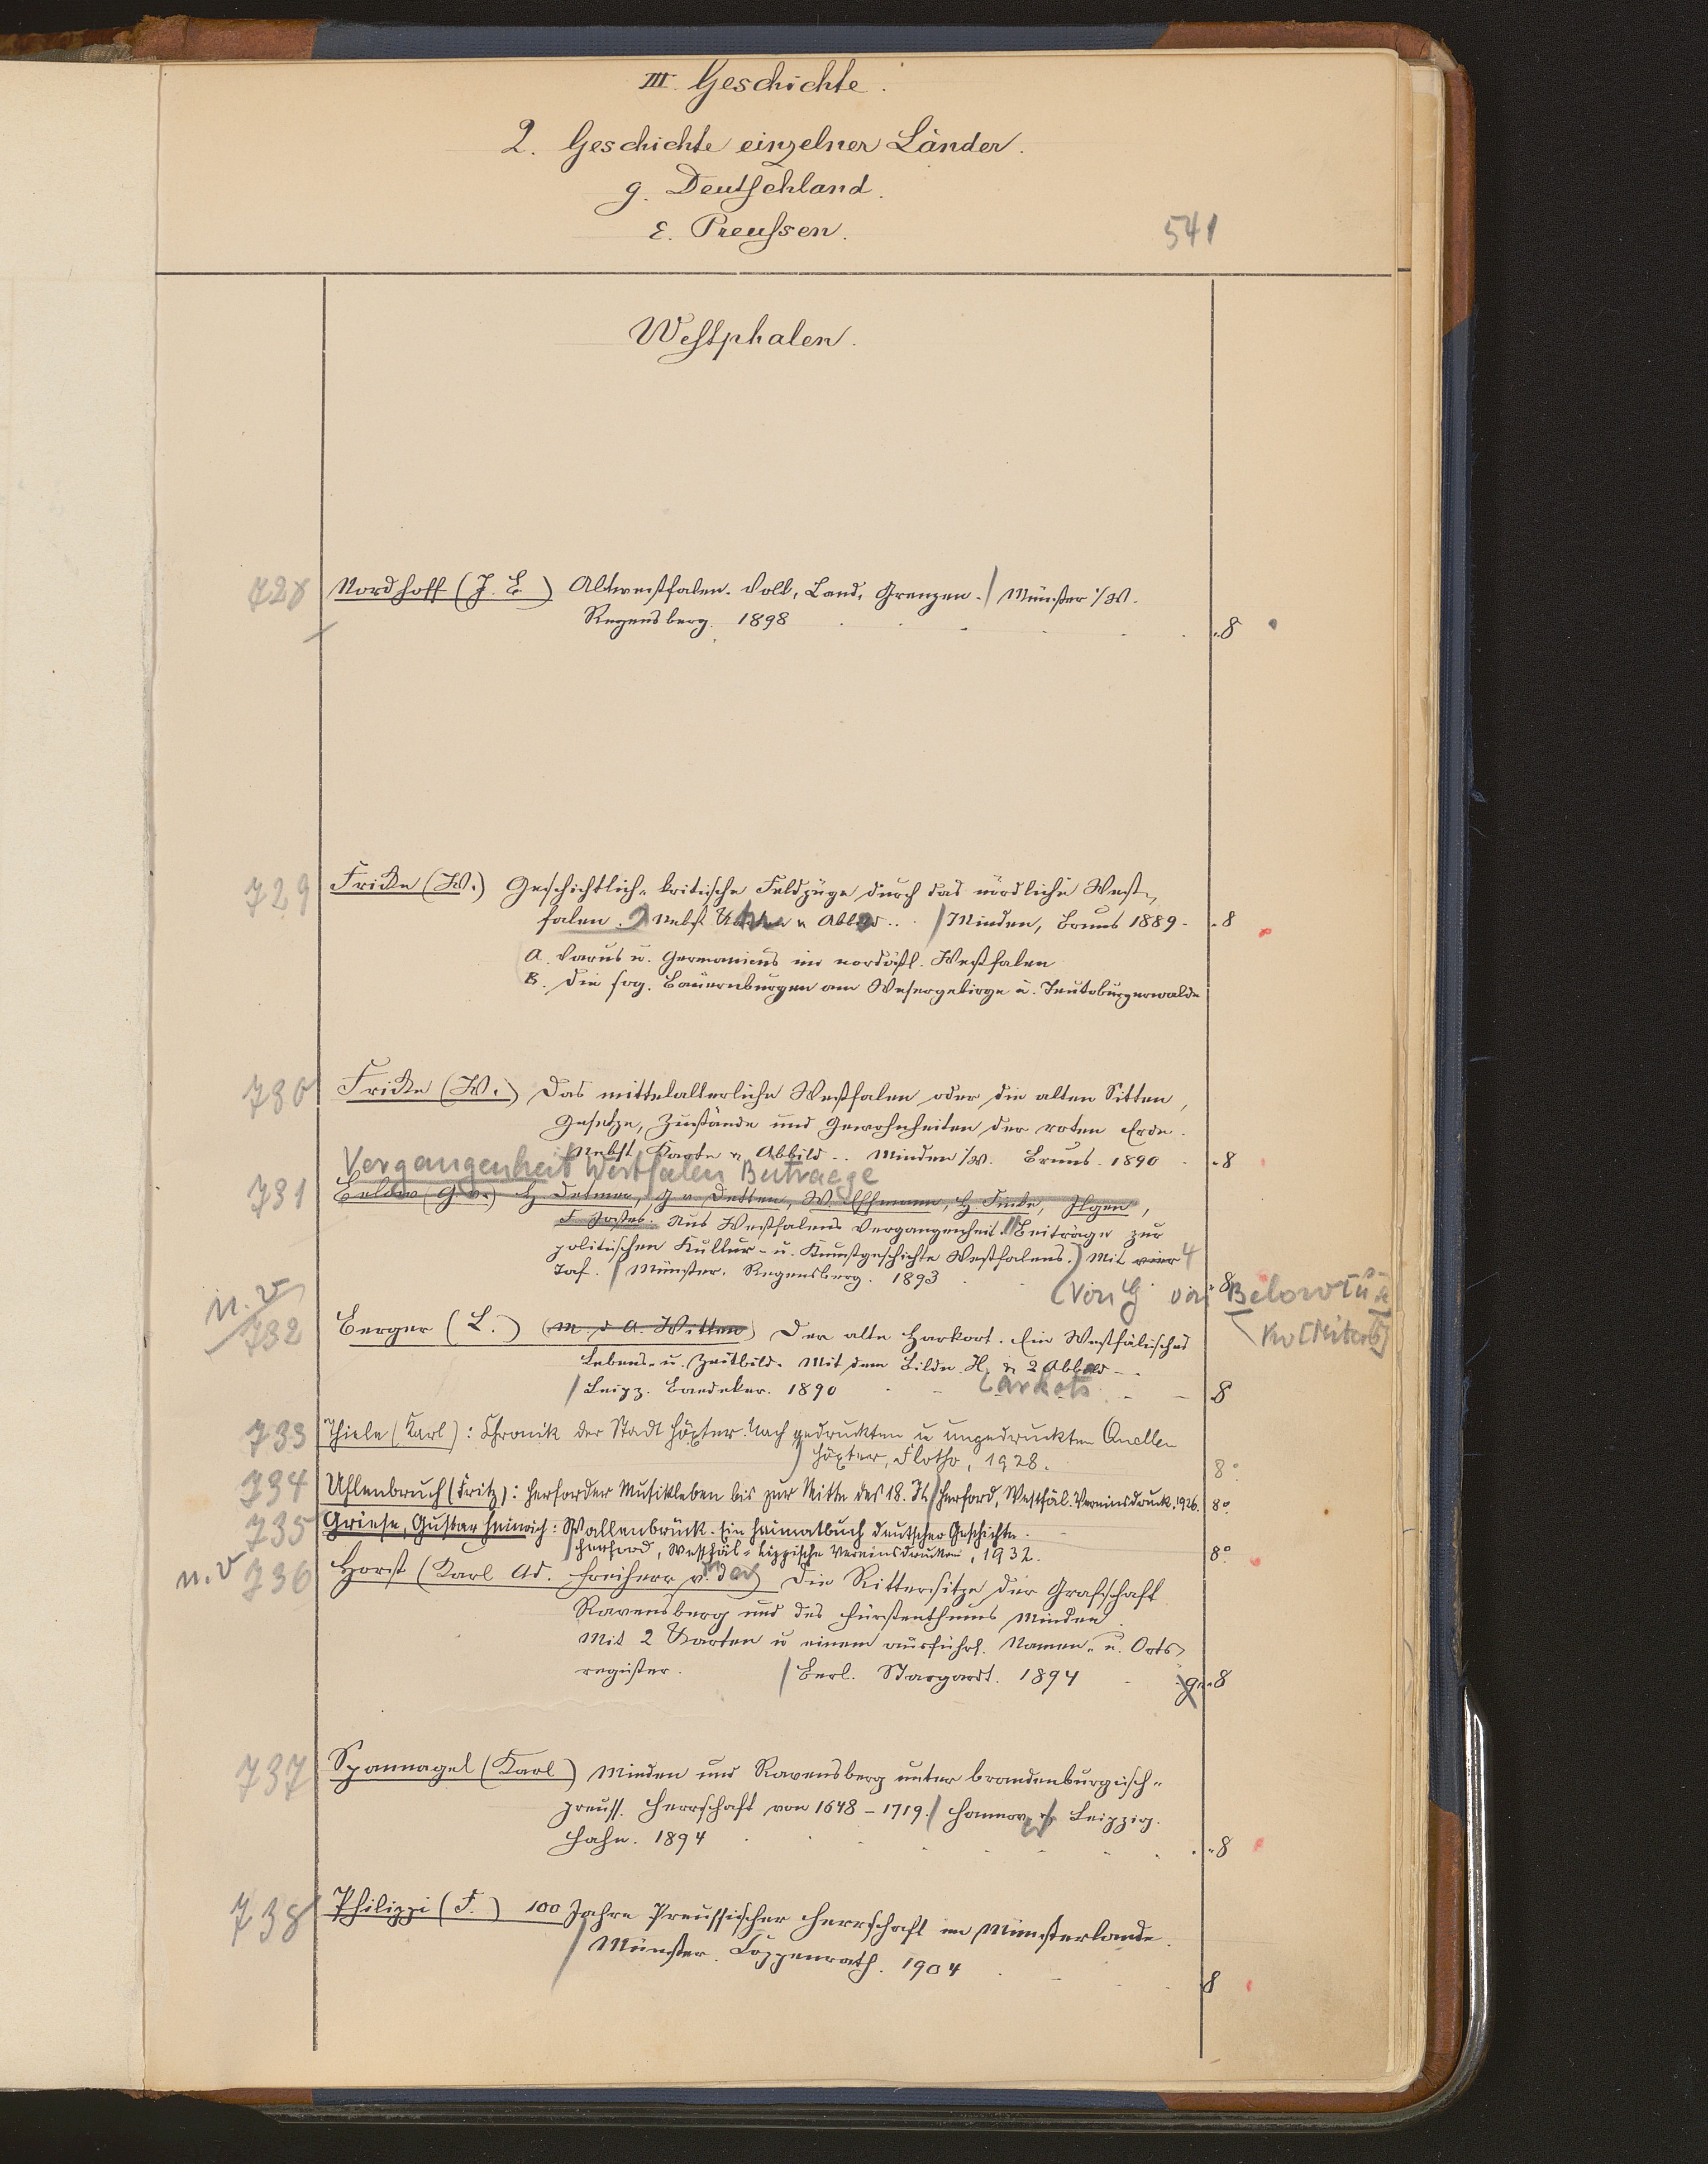 III. Geschichte.
2. Geschichte einzelner Länder.
g. Deutschland.
ε. Preussen.
541
Westphalen.
728 Nordhoff (J. B.) Altwestfalen. Volk, Land, Grenzen. / Münster i/W.
Regensberg. 1898 8
729 Fricke (W.) Geschichtlich-kritische Feldzüge durch das nördliche West-
falen. Nebst Karten u Abbild.. / Minden, Bruns 1889. 8
A. Varus u. Germanicus im nordöstl. Westfalen
B. Die sog. Bauernburgen am Wesergebirge u. Teutoburgerwalde
730 Fricke (W.) Das mittelalterliche Westfalen oder die alten Sitten,
Gesetze, Zustände und Gewohnheiten der roten Erde.
Nebst Karte u. Abbild.. Minden i/W. Bruns. 1890 8
Vergangenheit Westfalen Beitraege
731 Below (G. v.) H. Detmer, G v Detten, W. Effmann, H. Finke, Ilgen,
F. Jostes. Aus Westfalens Vergangenheit. Beiträge zur
politischen Kultur- u. Kunstgeschichte Westfalens. Mit vier 4
Taf. / Münster. Regensberg. 1893 8
(Von G von Below [u a]
n. v
732 Berger (L.) (m. d A. Witten) Der alte Harkort. Ein Westfälisches
Lebens- u. Zeitbild. Mit dem Bilde H. arkorts & 2 Abbild
/ Leipz. Baedeker. 1890 8
733 Thiele (Karl): Chronik der Stadt Höxter. Nach gedruckten u ungedruckten Quellen
Höxter, Flotho, 1928. 8°
734 Uhlenbruch (Fritz): Herforder Musikleben bis zur Mitte des 18. Jh / Herford, Westfäl. Vereinsdruck. 1926. 8°
735 Griese, Gustav Heinrich: Wallenbrück. Ein Heimatbuch deutscher Geschichte.
/ Herford, Westfäl-Lippische Vereinsdruckerei, 1932. 8°
n. v 736 Horst (Karl Ad. Freiherr v. der) Die Rittersitze der Grafschaft
Ravensberg und des Fürstenthums Minden.
Mit 2 Karten u einem ausführl. Namen- u. Orts-
register. / Berl. Stargardt. 1894 8
737 Spannagel (Karl) Minden und Ravensberg unter brandenburgisch-
preuss. Herrschaft von 1648 – 1719. / Hannov. u Leipzig.
Hahn. 1894 8
738 Philippi (F.) 100 Jahre Preussischer Herrschaft im Münsterlande.
/ Münster. Coppenrath. 1904 8